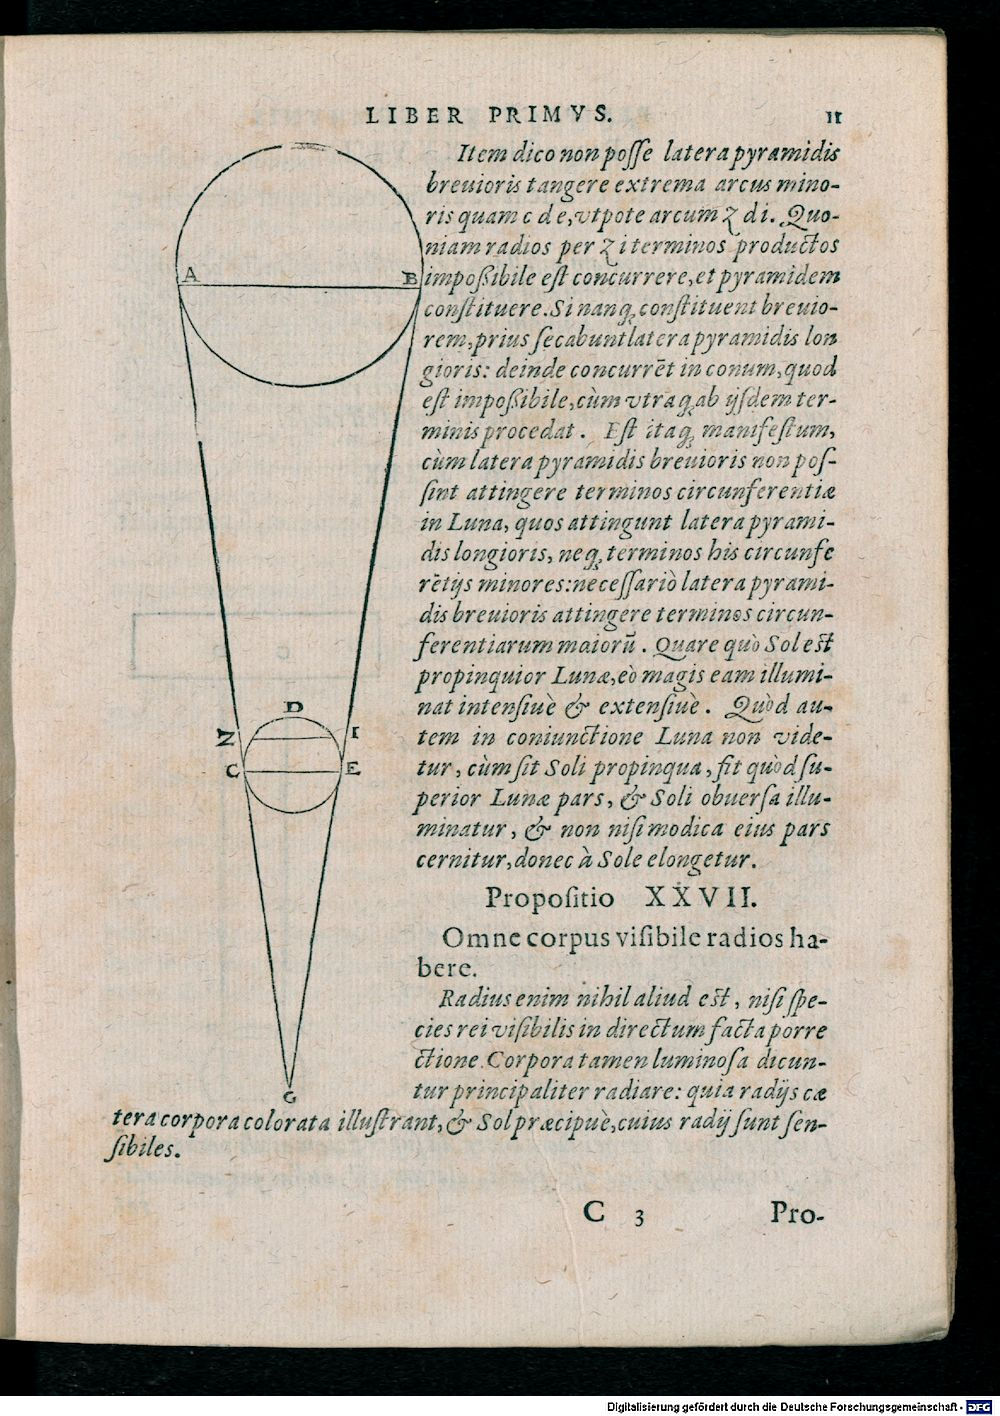 LIBER PRIMVS. 11
Item dico non posse latera pyramidis
breuioris tangere extrema arcus mino-
ris quam c d e, vtpote arcum z d i. Quo-
niam radios per z i terminos productos
impoßibile est concurrere, et pyramidem
constituere. Si nanq; constituent breuio-
rem, prius secabunt latera pyramidis lon
gioris: deinde concurrēt in conum, quod
est impoßibile, cùm vtraq; ab ijsdem ter-
minis procedat. Est itaq; manifestum,
cùm latera pyramidis breuioris non pos-
sint attingere terminos circunferentiæ
in Luna, quos attingunt latera pyrami-
dis longioris, neq; terminos his circunfe
rētijs minores: necessariò latera pyrami-
dis breuioris attingere terminos circun-
ferentiarum maiorū. Quare quò Sol est
propinquior Lunæ, eò magis eam illumi-
nat intensiuè & extensiuè. Quòd au-
tem in coniunctione Luna non vide-
tur, cùm sit Soli propinqua, fit quòd su-
perior Lunæ pars, & Soli obuersa illu-
minatur, & non nisi modica eius pars
cernitur, donec à Sole elongetur.
Propositio XXVII.
Omne corpus visibile radios ha-
bere.
Radius enim nihil aliud est, nisi spe-
cies rei visibilis in directum facta porre
ctione. Corpora tamen luminosa dicun-
tur principaliter radiare: quia radijs cæ
tera corpora colorata illustrant, & Sol præcipuè, cuius radij sunt sen-
sibiles.
A B
D
Z I
C E
G
C 3 Pro-
Digitalisierung gefördert durch die Deutsche Forschungsgemeinschaft - DFG